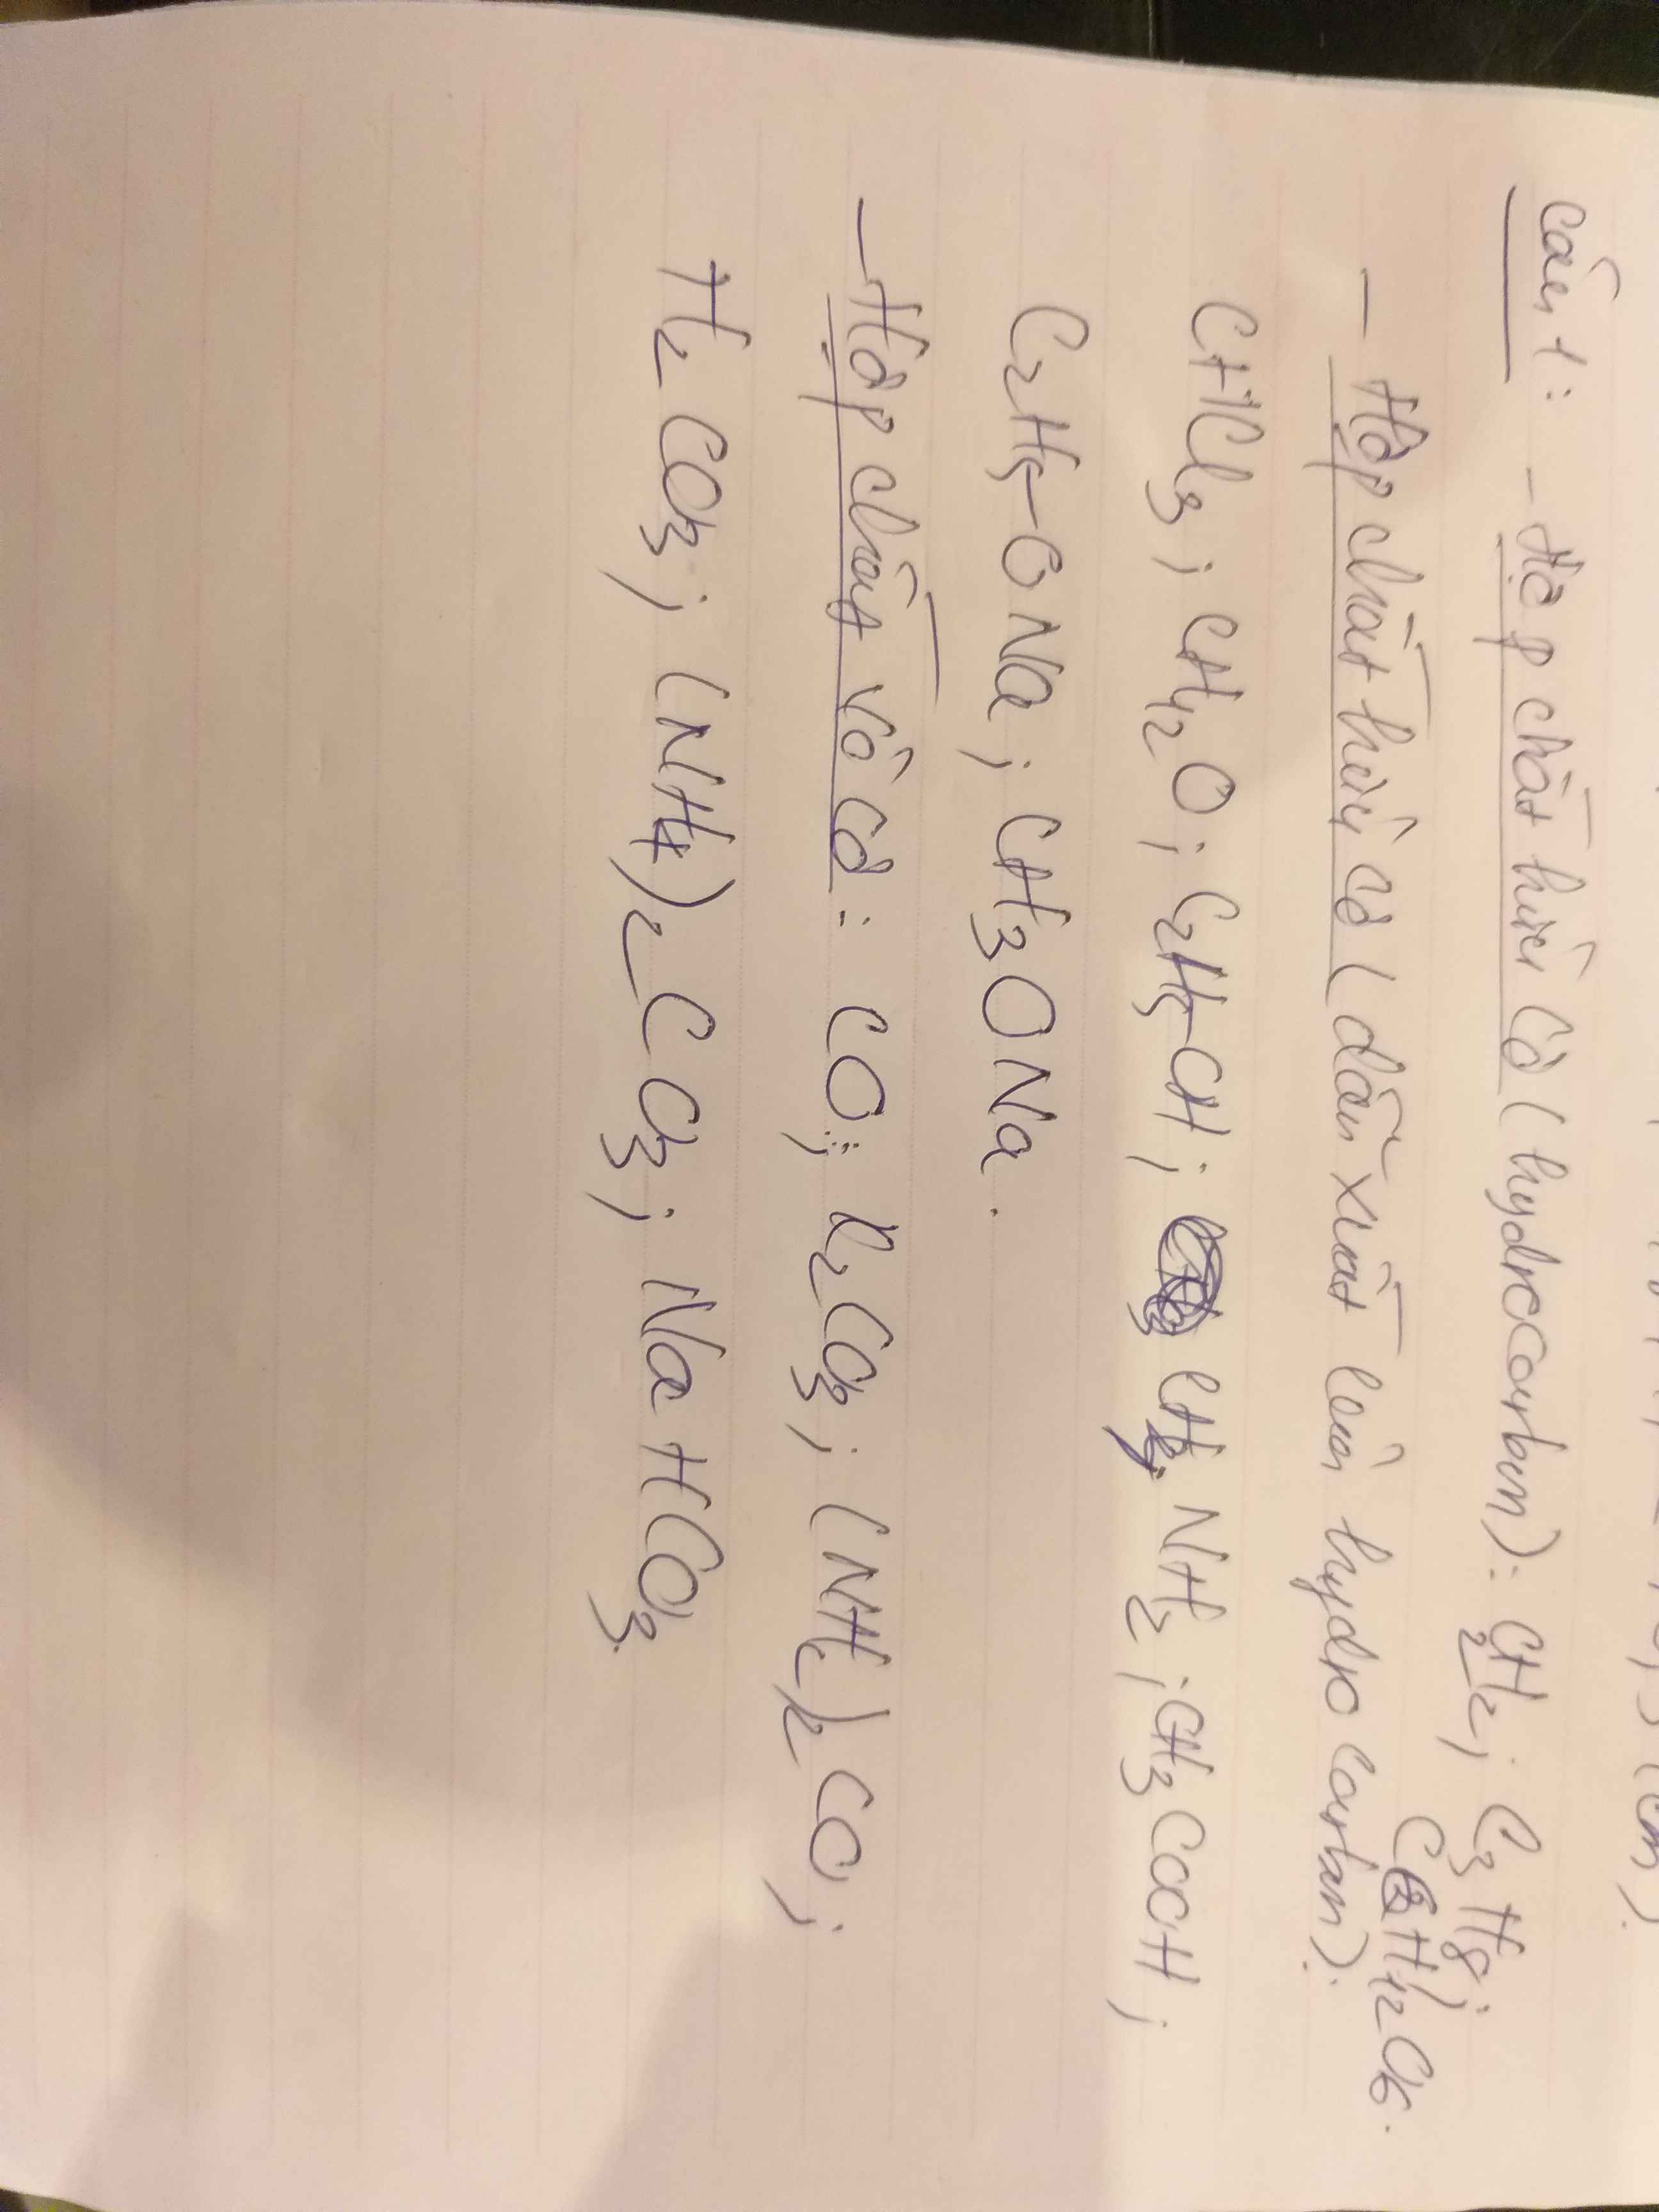 Câu 1: - Hợp chất hữu cơ (hydrocarbun): C₂H₂; C₃H₈;
C₆H₁₂O₆.
- Hợp chất hữu cơ (dẫn xuất của hydro carbon):
CHCl₃; CH₂O; C₂H₅-OH; CH₃NH₂; CH₃COOH;
C₂H₅-ONa; CH₃ONa.
- Hợp chất vô cơ: CO; K₂CO₃; (NH₂)₂CO;
H₂CO₃; (NH₄)₂CO₃; NaHCO₃